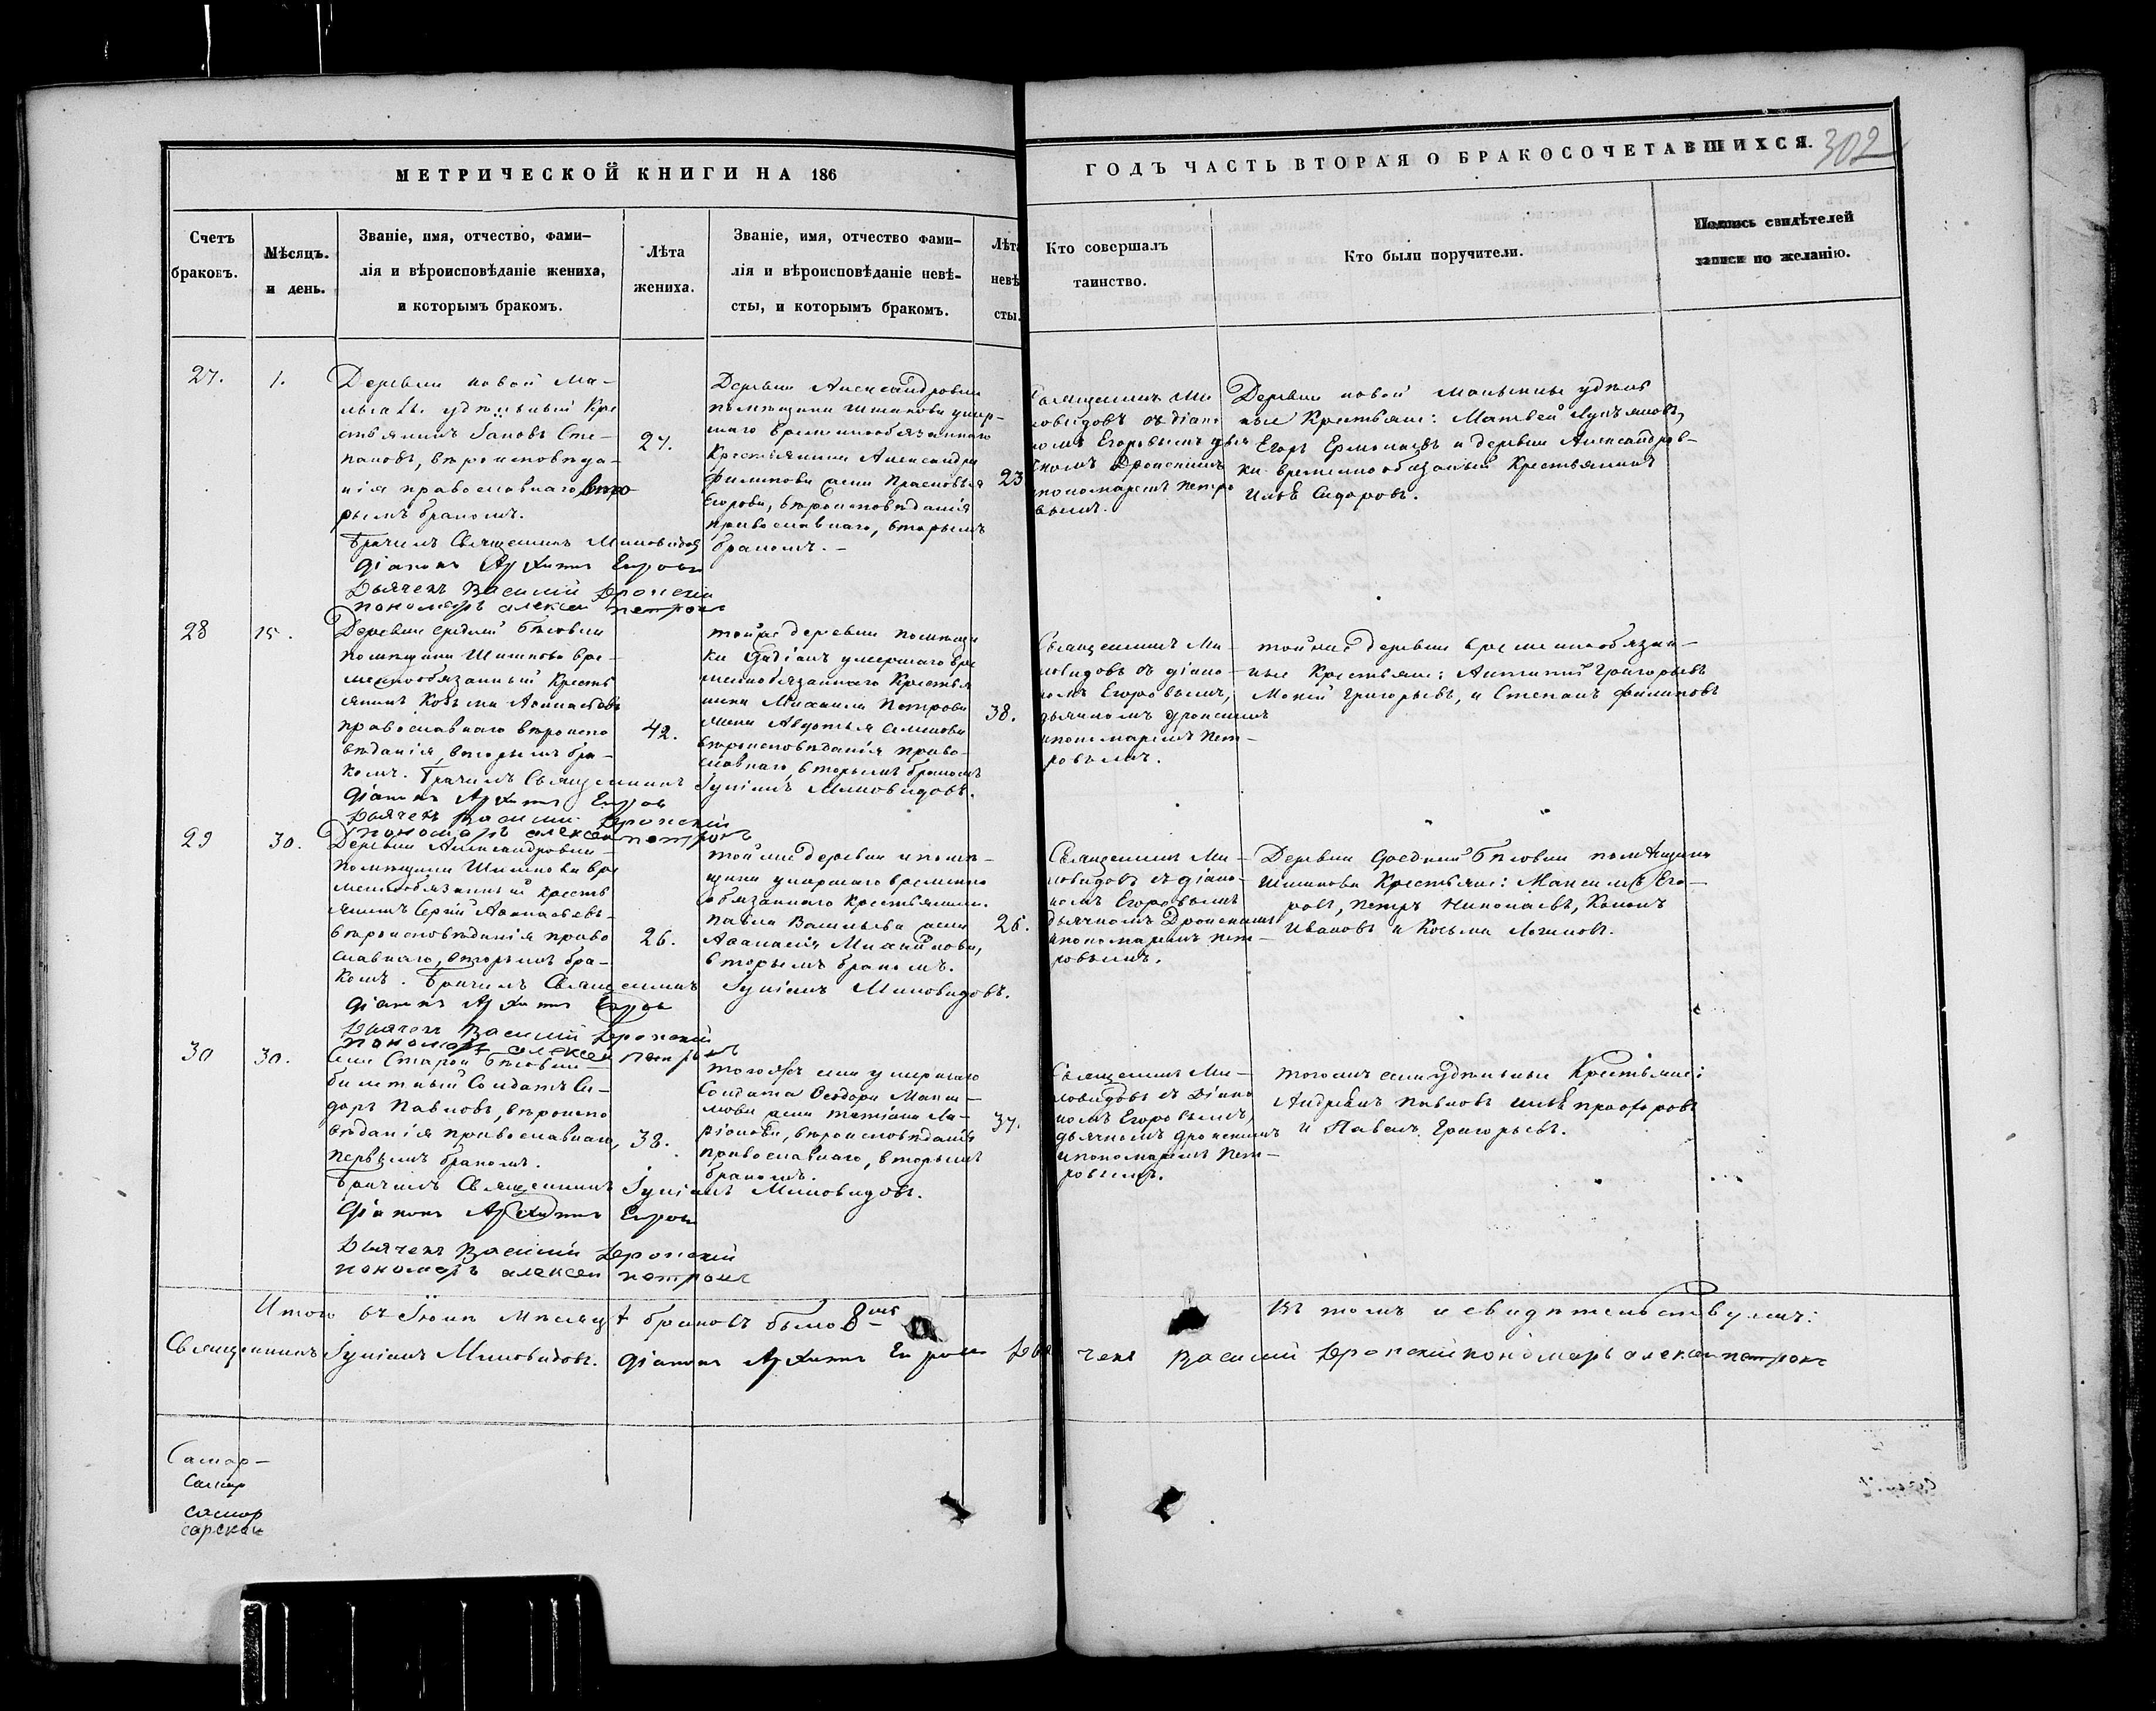 МЕТРИЧЕСКОЙ КНИГИ НА 186
ГОДЪ ЧАСТЬ ВТОРАЯ О БРАКОСОЧЕТАВШИХСЯ.
302
Счетъ
браковъ.
Мѣсяцъ.
и день.
Званіе, имя, отчество, фами-
лія и вѣроисповѣданіе жениха,
и которымъ бракомъ.
Лѣта
жениха.
Званіе, имя, отчество фами-
лія и вѣроисповѣданіе невѣ-
сты, и которымъ бракомъ.
Лѣта
невѣ
сты.
Кто совершалъ
таинство.
Кто были поручители.
Подпись свидѣтелей
записи по желанію.
27.
1.
Деревни новой Ма-
удѣльный Кре
стьянинъ Іаковъ Сте-
пановъ, вѣроисповѣда-
нія православнаго вто-
рымъ бракомъ.
Вѣнчалъ Священникъ Миловидов
Діаконъ Егоров
Дьячекъ Василий Дронский
пономарь алексеи петровъ
27.
Деревни Александровки
помѣщика Шишкова умер-
шаго временнообязаннаго
Крестьянина Александра
Филипова жена Прасковья
Егорова, вѣроисповѣданія
православнаго, вторымъ
бракомъ.-
23
Священникъ Ми
ловидовъ съ діако
номъ Егоровымъ дья
чкомъ Дронскимъ
ипономаремъ Петро
вымъ.
Деревни новой удѣль
ные Крестьяне: Матвей Лукъяновъ,
Егоръ Ермолаевъ и деревни Александров-
ки временнообязаный Крестьянинъ
Илья Сидоровъ.
28
15.
Деревни средний Бѣловки
помѣщика Шишкова вре-
меннообязанный Кресть
янинъ Козьма Афанасьевъ
православнаго вѣроиспо
вѣданія, вторымъ бра-
комъ. Вѣнчалъ Священникъ Іуліанъ Миловидовъ.
Діаконъ Егоров
Дьячекъ Василии Дронский
пономарь алексеи петровъ
42.
тойже деревни помѣщи
ка умершаго вре
меннообязаннаго Крестья
нина Михаила Петрова
жена Авдотья Семенова
вѣроисповѣданія право-
славнаго, вторымъ бракомъ
38.
Священникъ Ми-
ловидовъ съ діако-
номъ Егоровымъ,
дьячкомъ Дронскимъ
ипономаремъ Пет-
ровымъ.
тойже деревни временнообязан-
ные Крестьяне: Антипъ Григорьевъ
Мокий Григорьевъ, и Степанъ Филиповъ
29
30.
Деревни Александровки
помѣщика Шишкова вре
меннообязанный кресть
янинъ Сергій Афанасьевъ
вѣроисповѣданія право
славнаго, вторымъ бра-
комъ. Вѣнчалъ Священникъ Іуліанъ Миловидовъ.
Діаконъ Егоров
Дьячекъ Василий Дронский
пономарь алексеи петровъ
26.
тойже деревни ипомѣ-
щика умершаго временно
обязаннаго Крестьянина
Павла Васильева жена
Афанасія Михайлова,
вторымъ бракомъ.
26.
Священникъ Ми-
ловидовъ съ діако-
номъ Егоровымъ
дьячкомъ Дронскимъ
ипономаремъ Пет-
ровымъ.
Деревни Средний Бѣловки помѣщика
Шишкова Крестьяне: Максимъ Его-
ровъ, Петръ Николаевъ, Кононъ
Ивановъ и Козьма Логиновъ.
30
30.
Села Старой Бѣловки
билетный Солдатъ Си-
доръ Павловъ, вѣроиспо
вѣданія православнаго,
первымъ бракомъ.
Вѣнчалъ Священникъ Іуліанъ Миловидовъ.
Діаконъ Егоровъ
Дьячекъ Василий Дронский
пономарь алексеи петровъ
38.
тогоже села умершаго
Солдата Феодора Макси-
мова жена татіана Ла-
ріонова, вѣроисповѣданія
православнаго, вторымъ
бракомъ.
37.
Священникъ Ми-
ловидовъ съ Діако
номъ Егоровымъ,
дьячкомъ Дронскимъ
ипономаремъ Пет-
ровымъ.
тогожъ села удѣльные Крестьяне:
Андреянъ Павловъ илья прохоровъ
и Павелъ Григорьевъ.
Итого въ Іюлѣ Мѣсяцѣ браковъ было 8мь
Въ томъ и свидѣтельствуемъ:
Священникъ Іуліанъ Миловидовъ. Діаконъ Егоров Дьячекъ Василий Дронский пономарь алексеи петровъ
Самар-
Самар
самар